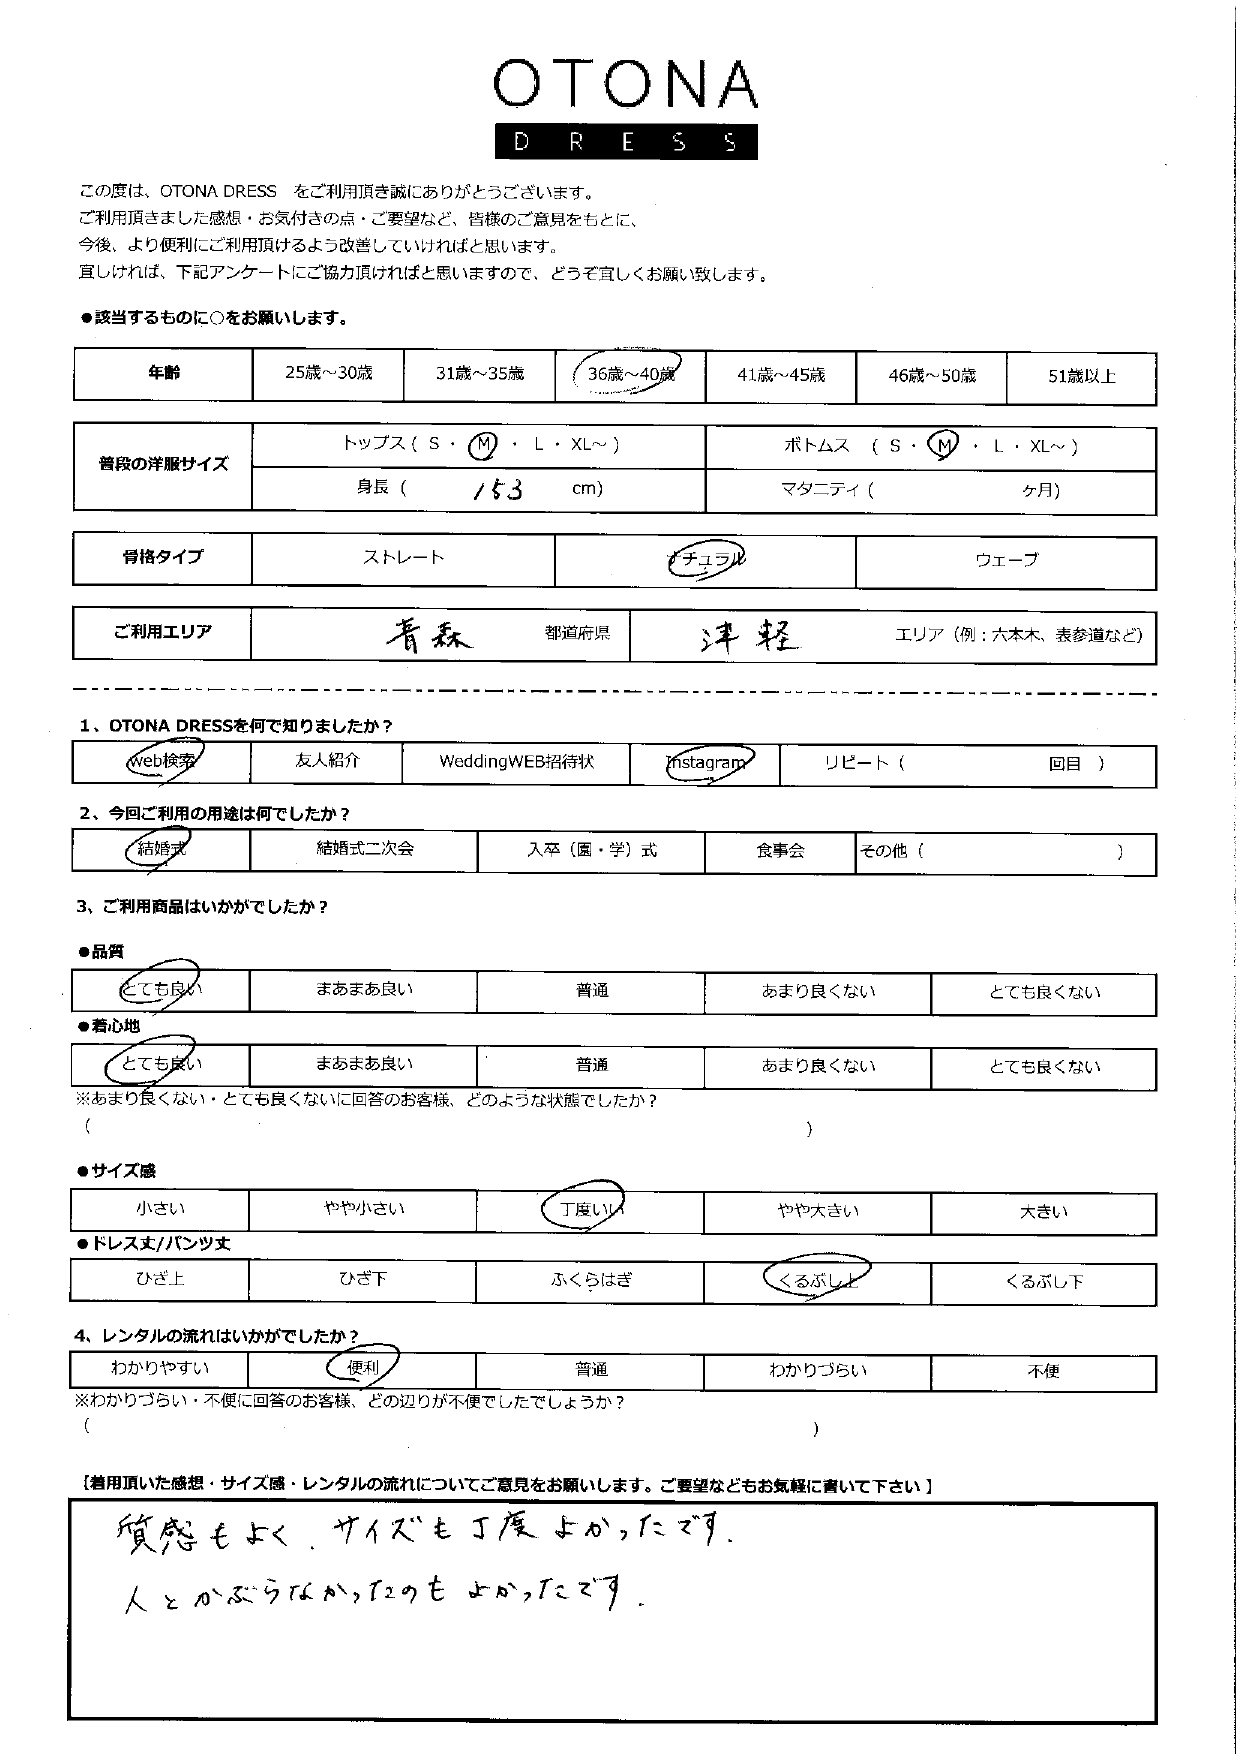 OTONA
DRESS
この度は、OTONA DRESS をご利用頂き誠にありがとうございます。
ご利用頂きました感想・お気付きの点・ご要望など、皆様のご意見をもとに、
今後、より便利にご利用頂けるよう改善していければと思います。
宜しければ、下記アンケートにご協力頂ければと思いますので、どうぞ宜しくお願い致します。
●該当するものに○をお願いします。
年齢 25歳～30歳 31歳～35歳 36歳～40歳 41歳～45歳 46歳～50歳 51歳以上
普段の洋服サイズ トップス ( S ・ M ・ L ・ XL～ ) ボトムス ( S ・ M ・ L ・ XL～ )
身長 ( 153 cm) マタニティ ( ケ月)
骨格タイプ ストレート ナチュラル ウェーブ
ご利用エリア 青森 都道府県 津軽 エリア（例：六本木、表参道など）
1、OTONA DRESSを何で知りましたか？
web検索 友人紹介 WeddingWEB招待状 Instagram リピート ( 回目 )
2、今回ご利用の用途は何でしたか？
結婚式 結婚式二次会 入卒（園・学）式 食事会 その他 ( )
3、ご利用商品はいかがでしたか？
●品質
とても良い まあまあ良い 普通 あまり良くない とても良くない
●着心地
とても良い まあまあ良い 普通 あまり良くない とても良くない
※あまり良くない・とても良くないに回答のお客様、どのような状態でしたか？
( )
●サイズ感
小さい やや小さい 丁度いい やや大きい 大きい
●ドレス丈/パンツ丈
ひざ上 ひざ下 ふくらはぎ くるぶし上 くるぶし下
4、レンタルの流れはいかがでしたか？
わかりやすい 便利 普通 わかりづらい 不便
※わかりづらい・不便に回答のお客様、どの辺りが不便でしたでしょうか？
( )
【着用頂いた感想・サイズ感・レンタルの流れについてご意見をお願いします。ご要望などもお気軽に書いて下さい】
質感もよく、サイズも丁度よかったです.
人とかぶらなかったのもよかったです.